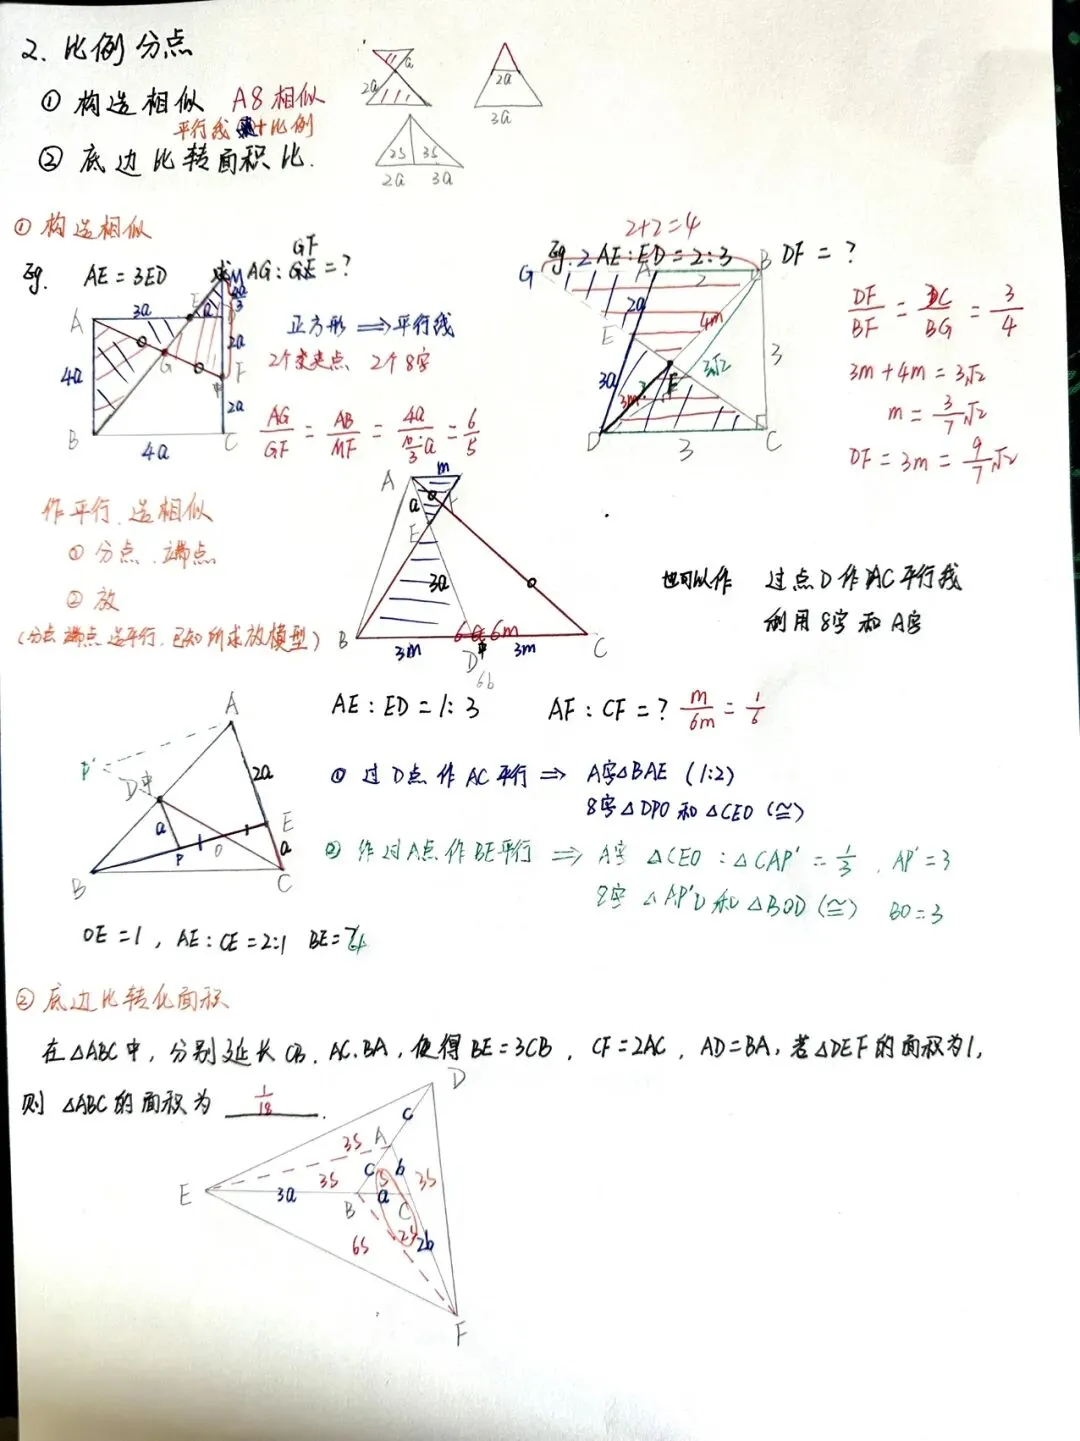 2. 比例分点
① 构造相似 A8相似
平行线 + 比例
② 底边比转面积比.
a
2a
2a
3a
2S 3S
2a 3a
① 构造相似
Eg. AE = 3ED 求 AG : GF = ?
A 3a E a D M
4a G F 2a
B 4a C 2a
正方形 ⟹ 平行线
2个交叉点 2个8字
AG/GF = AB/MF = 4a/(10/3 a) = 6/5
2+2=4
Eg. 2 AE : ED = 2 : 3 DF = ?
G A 2 B
2a E 4m
3a F 3√2 3
3m
D 3 C
DF/BF = DC/BG = 3/4
3m + 4m = 3√2
m = 3/7 √2
DF = 3m = 9/7 √2
作平行. 造相似
① 分点. 端点
② 放
(分点 端点 造平行. 已知所求放模型)
A m
a F
E
3a
B 3m D 中 3m C
6m
6b
也可以作 过点D作AC平行线
利用8字和A字
AE : ED = 1 : 3 AF : CF = ? m/6m = 1/6
A
P' D 中 2a
a 1 1 E
P O a
B C
OE = 1 , AE : CE = 2:1 BE = 4
① 过D点作AC平行 ⟹ A字△BAE (1:2)
8字△DPO和△CEO (≅)
② 作过A点作BE平行 ⟹ A字 △CEO : △CAP' = 1/3 . AP' = 3
8字 △AP'D和△BOD (≅) BO = 3
② 底边比转化面积
在△ABC中, 分别延长CB. AC. BA, 使得BE=3CB , CF=2AC , AD=BA, 若△DEF的面积为1,
则 △ABC的面积为 1/18 .
D
c
3S A
c b 3S
3S S
E 3a B a C
6S 2S 2b
F